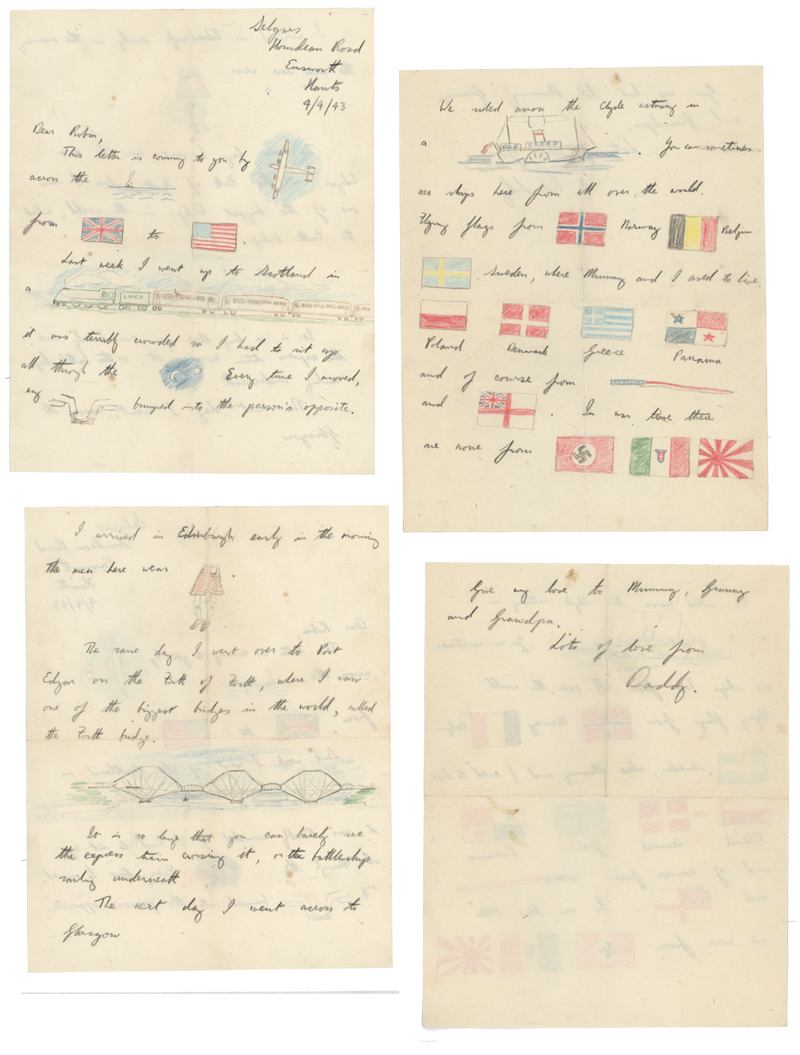 Selgars
Horndean Road
Emsworth
Hants
9/4/43
Dear Robin,
This letter is coming to you by
across the
from to .
Last week I went up to Scotland in
a
LNER
it was terribly crowded so I had to sit up
all through the Every time I moved,
my bumped into the person's opposite.
I arrived in Edinburgh early in the morning
the men here wear .
The same day I went over to Port
Edgar on the Firth of Forth, where I saw
one of the biggest bridges in the world, called
the Forth bridge.
It is so large that you can barely see
the express train crossing it, or the battleships
sailing underneath
The next day I went across to
Glasgow
We sailed across the Clyde estuary in
a . You can sometimes
see ships here from all over the world.
Flying flags from Norway Belgium
Sweden, where Mummy and I used to live,
Poland Denmark Greece Panama
and of course from
and . In war time there
are none from
Give my love to Mummy, Granny
and Grandpa.
Lots of love from
Daddy.